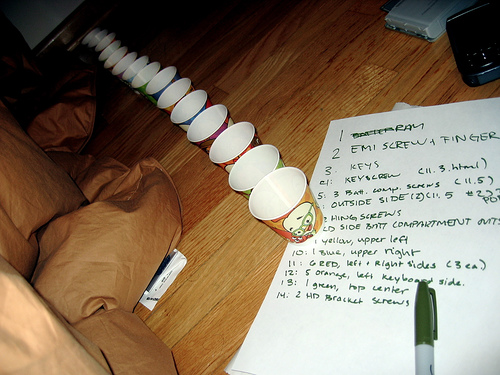 1 BATTERY
2 EMI SCREW + FINGER
3. KEYS
4: KEYSCREW (11.3.html)
5. 3 Batt. comp. screws (11.5)
: OUTSIDE SIDE (2) (11.5 #2
HING SCREWS
LD SIDE BATT COMPARTMENT OUTS
1 yellow, upper left
10: 1 Blue, upper right
11: 6 RED, left + Right sides (3 ea)
12: 5 orange, left keyboard side.
13: 1 green, top center
14: 2 HD Bracket screws